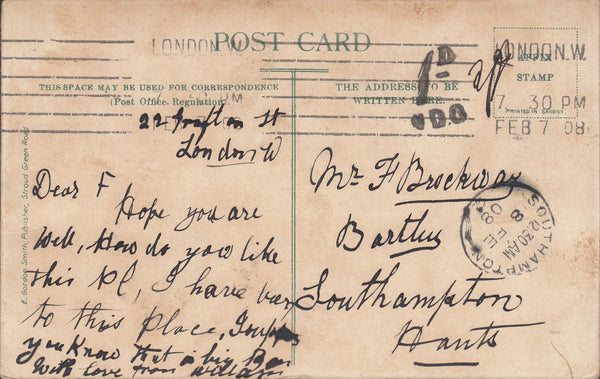 LONDON.W.
POST CARD
THIS SPACE MAY BE USED FOR CORRESPONDENCE
(Post Office Regulation)
THE ADDRESS TO BE
WRITTEN HERE.
1D
LONDON.W.
AFFIX
STAMP
PRINTED IN SAXONY
7. 30 PM
FEB 7 08
PM
22 Grafton St
London W
Dear F
Hope you are
well, How do you like
this Pl, I have been
to this Place, I suppose
you Know that a big
With love from William
Mr F Brockway
Southampton
Hants
SOUTHAMPTON
12.30 AM
FE 8
08
E. Gordon Smith, Publisher, Stroud Green Road